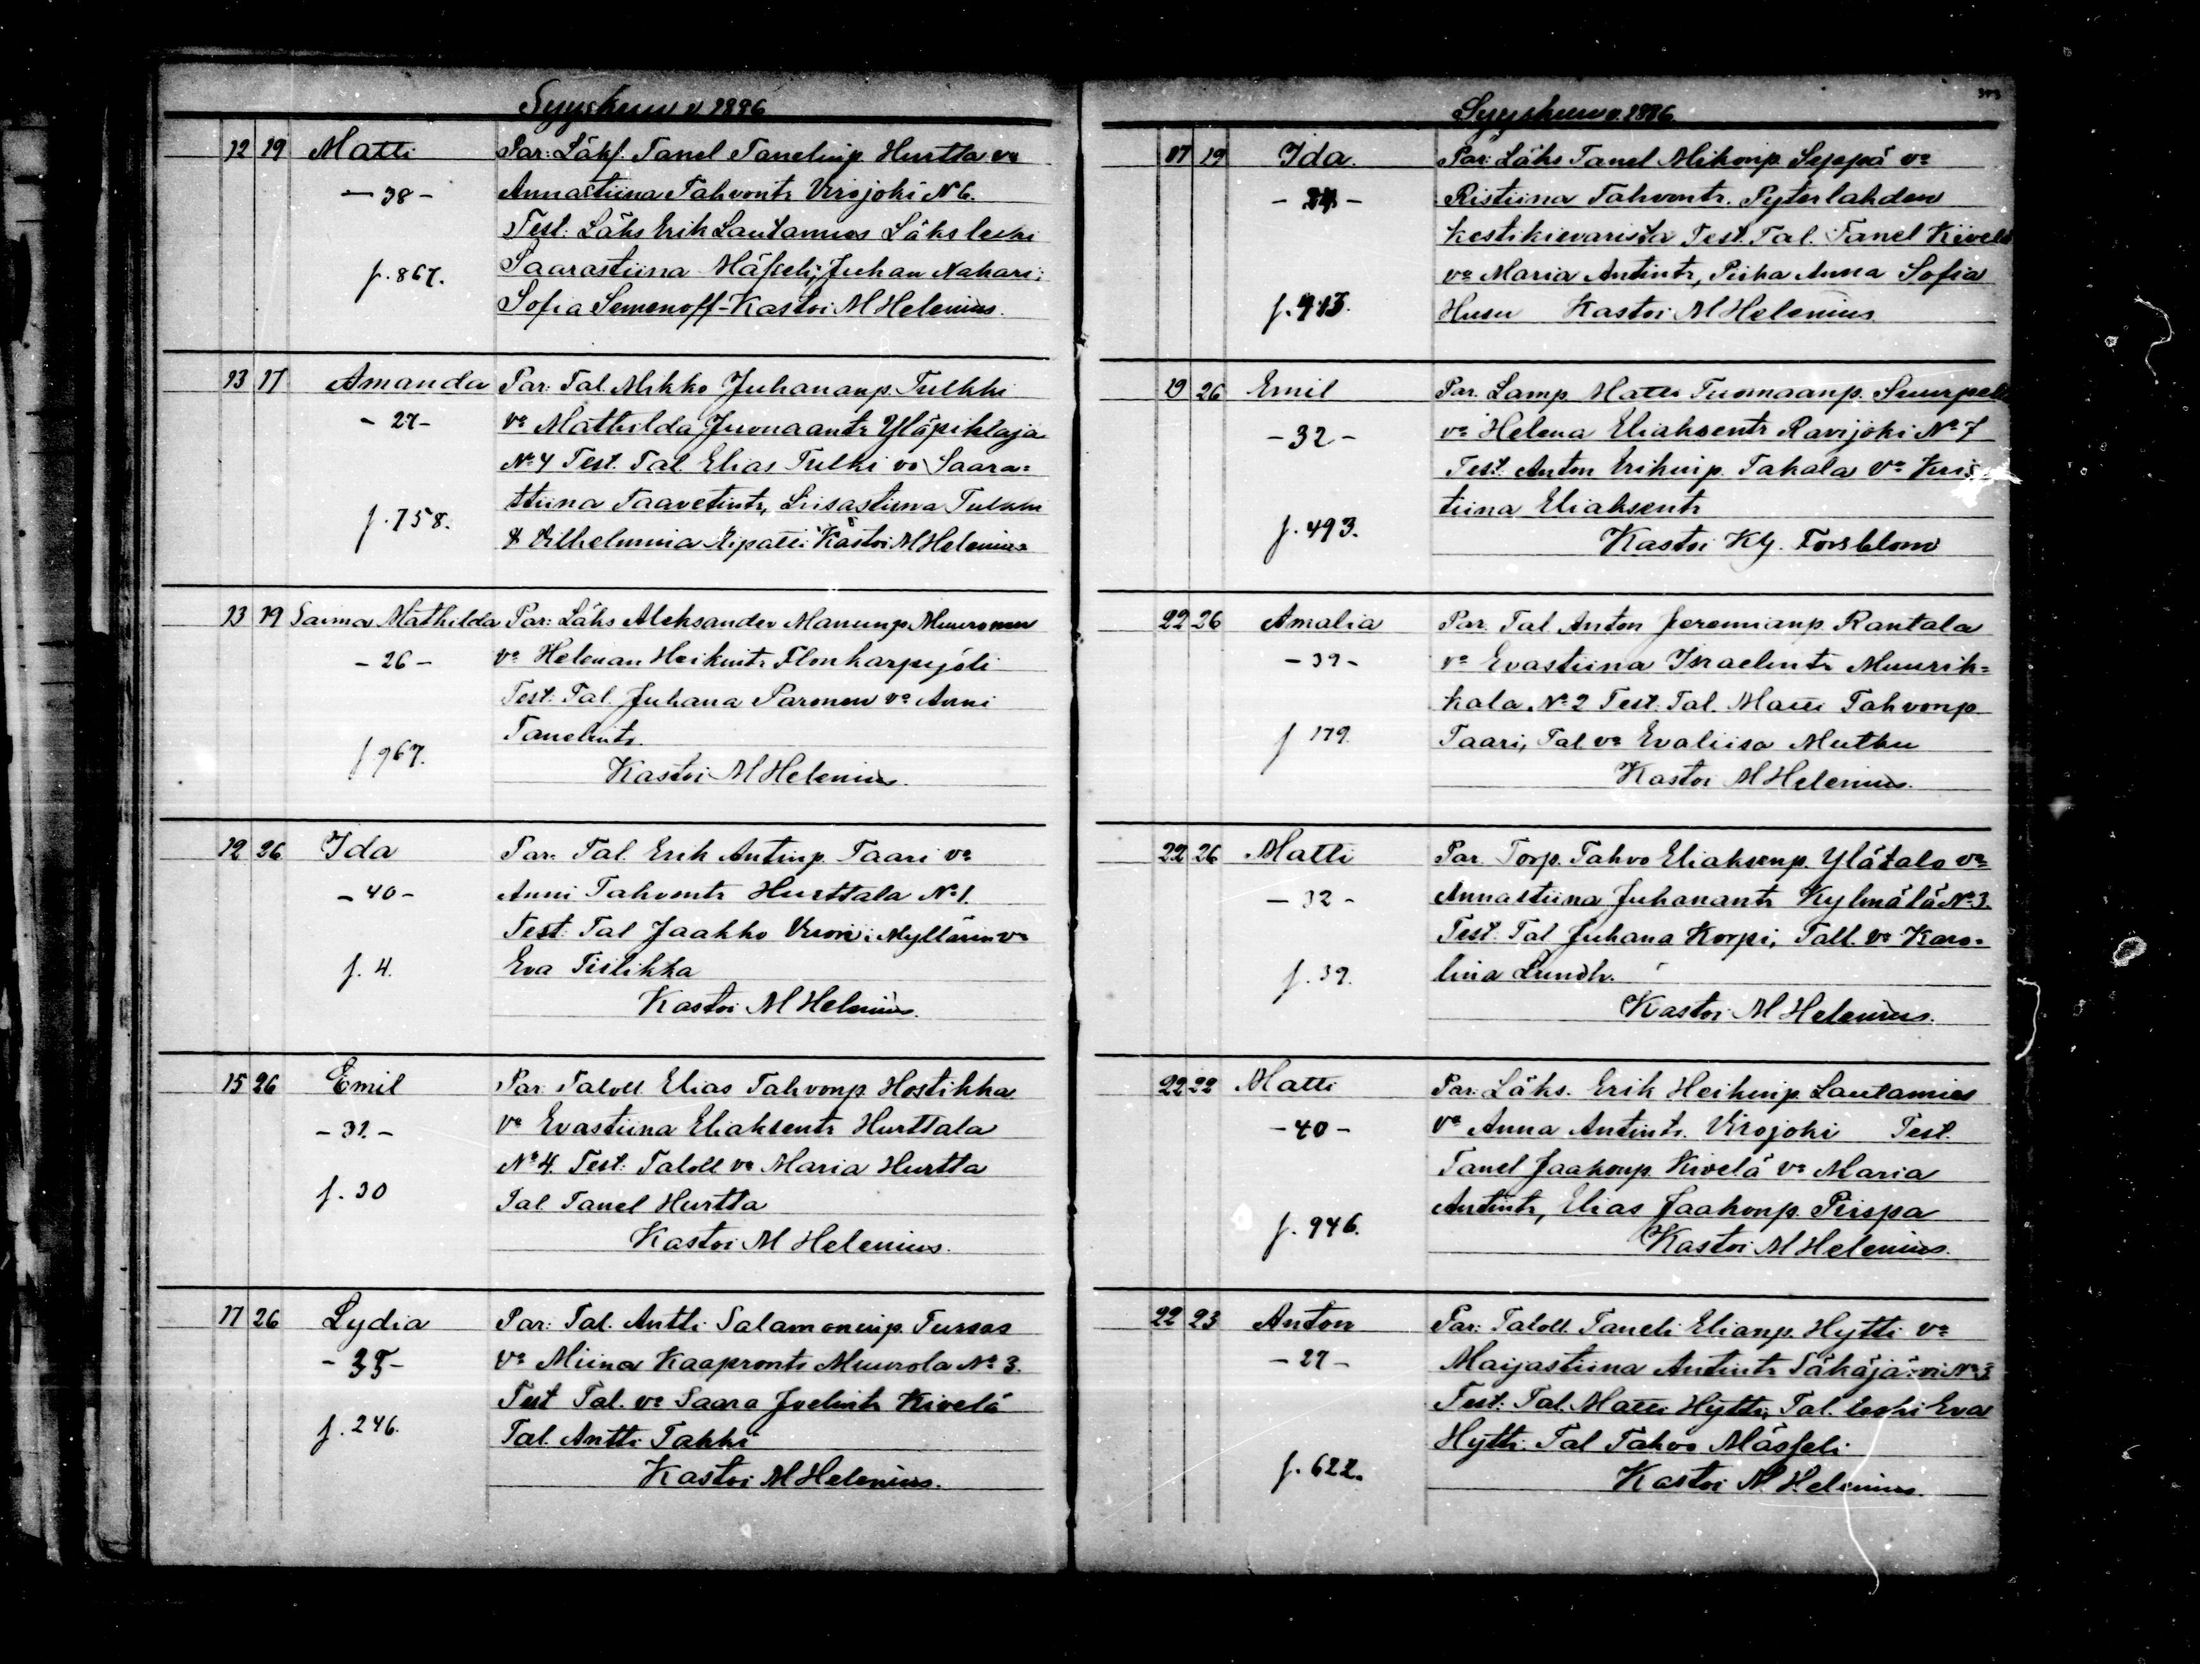 Syyskuu v 1886
12 19 Matti Par: Läks. Tanel Tanelinp. Hurtta vo
- 38 - Annastiina Tahvontr Virojoki N 6.
Test: Läks Erik Lautamies Läks leski
f. 867. Saarastiina Mässeli; Juhan Nahari;
Sofia Semenoff - Kastoi M Helenius.
13 17 Amanda Par: Tal. Mikko Juhananp. Tulkki
- 27 - vo Mathilda Juonaantr Yläpihlaja
No 4 Test. Tal Elias Tulki vo Saara=
f. 758. stiina Taavetintr, Liisastiina Tulkki
& Vilhelmina Ripatti Kastoi M Helenius
13 19 Saima Mathilda Par: Läks Aleksander Manunp. Muuronen
- 26 - vo Helenan Heikintr
Test: Tal. Juhana Paronen vo Anni
f 967. Tanelintr.
Kastoi M Helenius.
12 26 Ida Par. Tal. Erik Antinp. Taari vo
- 40 - Anni Tahvontr Hurttala No 1.
Test: Tal Jaakko Myllärin vo
f. 4. Eva Tiilikka
Kastoi M Helenius.
15 26 Emil Par: Taloll Elias Tahvonp. Hostikka
- 32 - vo Evastiina Eliaksentr Hurttala
No 4. Test: Taloll vo Maria Hurtta
f. 30 Tal Tanel Hurtta
Kastoi M Helenius.
17 26 Lydia Par: Tal. Antti Salamoninp. Tursas
- 35 - vo Miina Kaaprontr Muurola No 3.
Test Tal. vo Saara Joelintr Kivelä
f. 246. Tal. Antti Takki
Kastoi M Helenius.
Syyskuu v. 1886
17 19 Ida. Par: Läks Tanel Mikonp Seppä vo
Ristiina Tahvontr. Pyterlahden
kestikievarista Test. Tal. Tanel Kivelä
vo Maria Antintr, Piika Anna Sofia
f. 413. Husu Kastoi M Helenius
19 26 Emil Par. Lamp Matti Tuomaanp. Suurpelt
- 32 - vo Helena Eliaksentr Ravijoki No 7
Test. Anton Erikinp. Takala vo Kris
f. 493. tiina Eliaksentr
Kastoi Kg. Forsblom
22 26 Amalia Par. Tal. Anton Jeremianp. Rantala
- 39 - vo Evastiina Israelintr Muurik=
kala No 2 Test. Tal. Matti Tahvonp
f 179. Taari, Tal vo Evaliisa Mutku
Kastoi M Helenius.
22 26 Matti Par. Torp. Tahvo Eliaksenp. Ylätalo vo
- 32 - Annastiina Juhanantr Kylmälä No 3.
Test: Tal Juhana Korpi, Tall. vo Karo=
f. 39. lina Lundh.
Kastoi M Helenius.
22 22 Matti Par: Läks. Erik Heikinp. Lautamies
- 40 - vo Anna Antintr. Virojoki Test.
Tanel Jaakonp. Kivelä vo Maria
f. 946. Antintr, Elias Jaakonp. Piispa
Kastoi M Helenius.
22 23 Anton Par: Taloll. Taneli Elianp. Hytti vo
- 27 - Maijastiina Antintr Säkäjärvi No 3
Test: Tal. Matti Hytti, Tal. leski Eva
f. 622. Hytti. Tal Tahvo Mässeli
Kastoi M Helenius.